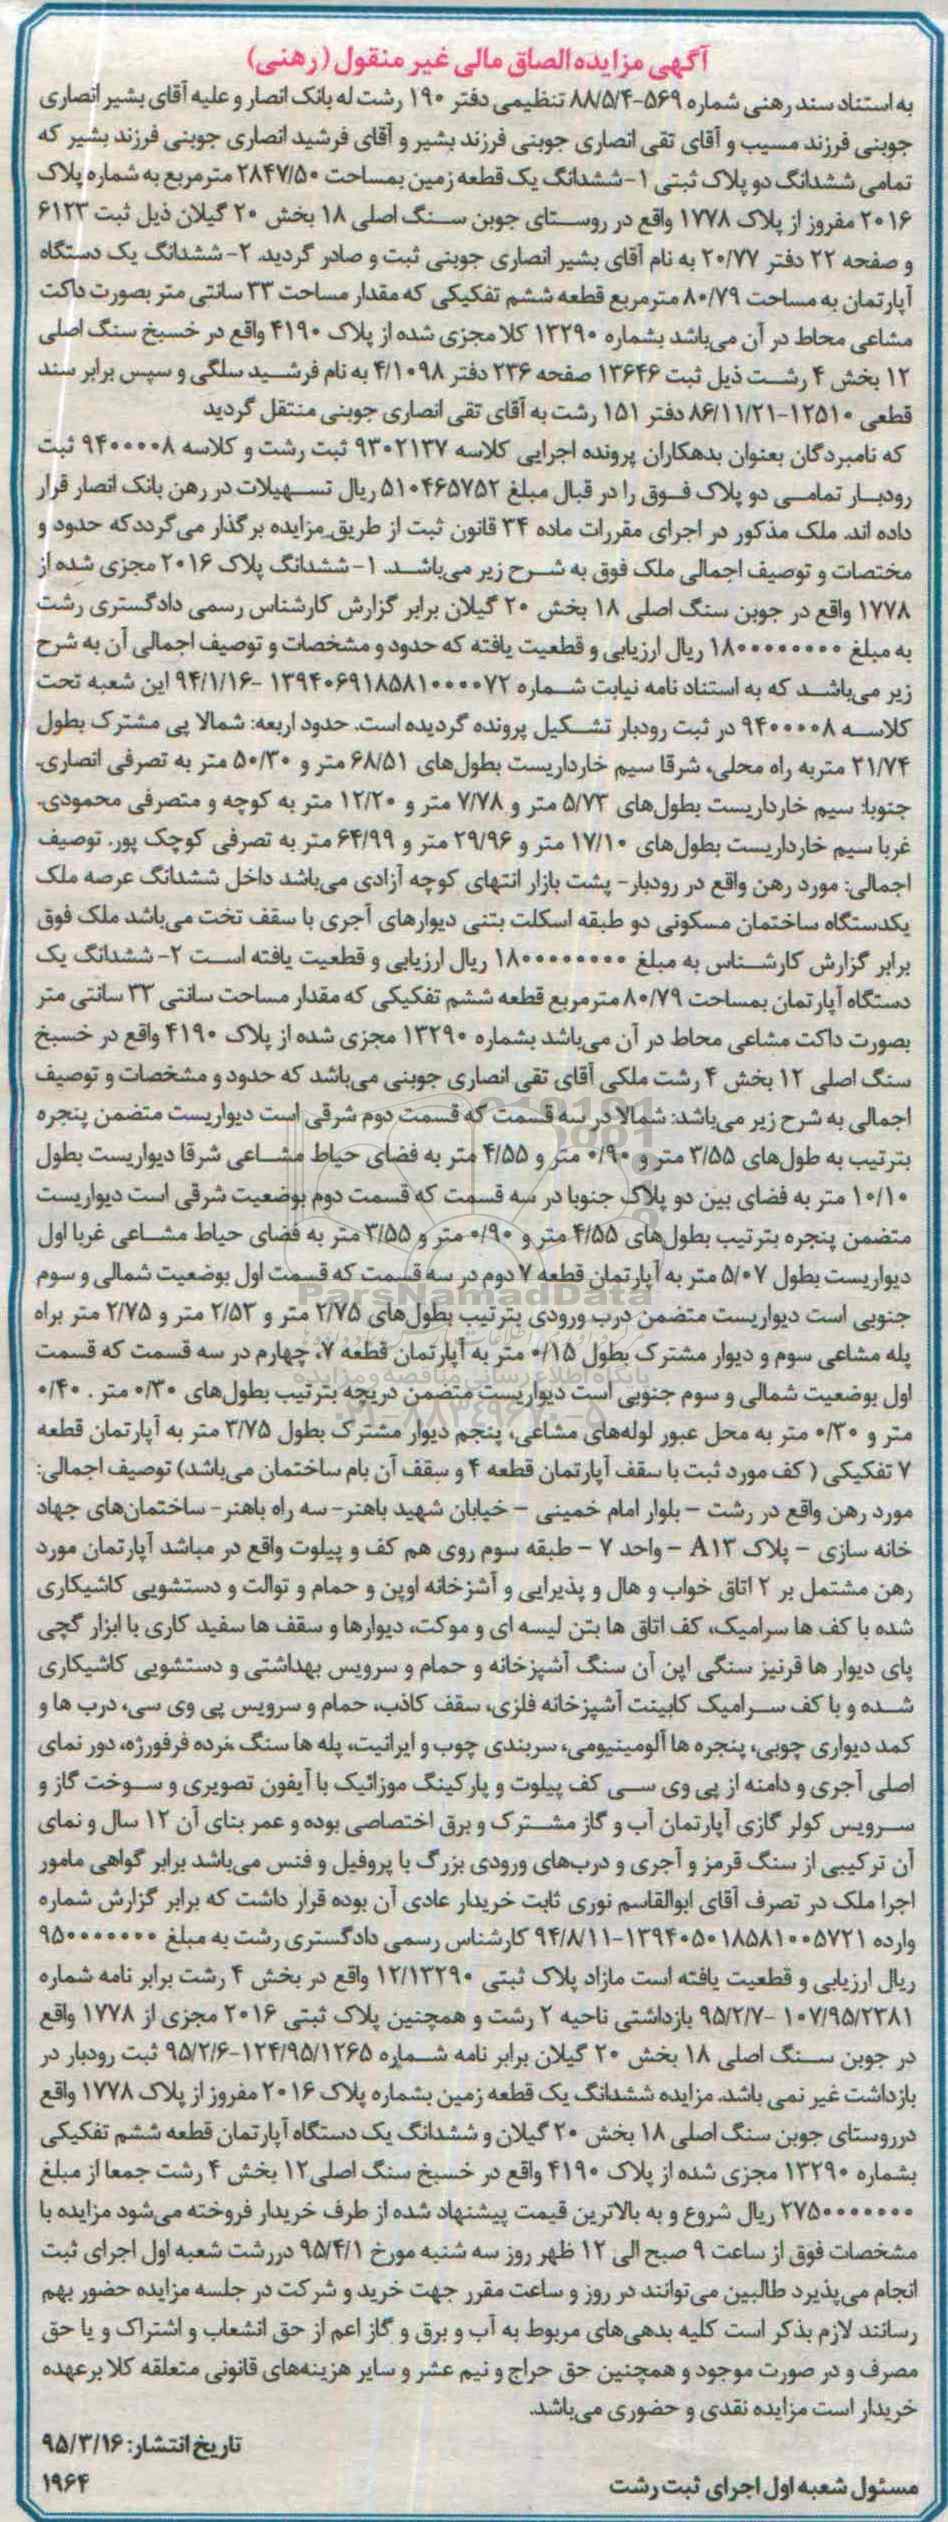 آگهی مزایده الصاق مالی غیر منقول (رهنی)
به استناد سند رهنی شماره ۵۶۹-۸۸/۵/۴ تنظیمی دفتر ۱۹۰ رشت له بانک انصار و علیه آقای بشیر انصاری
جوبنی فرزند مسیب و آقای تقی انصاری جوبنی فرزند بشیر و آقای فرشید انصاری جوبنی فرزند بشیر که
تمامی ششدانگ دو پلاک ثبتی ۱-ششدانگ یک قطعه زمین بمساحت ۲۸۴۷/۵۰ مترمربع به شماره پلاک
۲۰۱۶ مفروز از پلاک ۱۷۷۸ واقع در روستای جوبن سنگ اصلی ۱۸ بخش ۲۰ گیلان ذیل ثبت ۶۱۲۳
و صفحه ۲۲ دفتر ۲۰/۷۷ به نام آقای بشیر انصاری جوبنی ثبت و صادر گردید. ۲- ششدانگ یک دستگاه
آپارتمان به مساحت ۸۰/۷۹ مترمربع قطعه ششم تفکیکی که مقدار مساحت ۳۳ سانتی متر بصورت داکت
مشاعی محاط در آن می‌باشد بشماره ۱۳۲۹۰ کلا مجزی شده از پلاک ۴۱۹۰ واقع در خسبخ سنگ اصلی
۱۲ بخش ۴ رشت ذیل ثبت ۱۳۶۴۶ صفحه ۲۳۶ دفتر ۴/۱۰۹۸ به نام فرشید سلگی و سپس برابر سند
قطعی ۱۲۵۱۰-۸۶/۱۱/۲۱ دفتر ۱۵۱ رشت به آقای تقی انصاری جوبنی منتقل گردید
که نامبردگان بعنوان بدهکاران پرونده اجرایی کلاسه ۹۳۰۲۱۳۷ ثبت رشت و کلاسه ۹۴۰۰۰۰۸ ثبت
رودبار تمامی دو پلاک فوق را در قبال مبلغ ۵۱۰۴۶۵۷۵۲ ریال تسهیلات در رهن بانک انصار قرار
داده اند. ملک مذکور در اجرای مقررات ماده ۳۴ قانون ثبت از طریق مزایده برگذار می‌گردد که حدود و
مختصات و توصیف اجمالی ملک فوق به شرح زیر می‌باشد. ۱- ششدانگ پلاک ۲۰۱۶ مجزی شده از
۱۷۷۸ واقع در جوبن سنگ اصلی ۱۸ بخش ۲۰ گیلان برابر گزارش کارشناس رسمی دادگستری رشت
به مبلغ ۱۸۰۰۰۰۰۰۰۰ ریال ارزیابی و قطعیت یافته که حدود و مشخصات و توصیف اجمالی آن به شرح
زیر می‌باشد که به استناد نامه نیابت شماره ۱۳۹۴۰۶۹۱۸۵۸۱۰۰۰۰۷۲ -۹۴/۱/۱۶ این شعبه تحت
کلاسه ۹۴۰۰۰۰۸ در ثبت رودبار تشکیل پرونده گردیده است. حدود اربعه: شمالا پی مشترک بطول
۲۱/۷۴ متربه راه محلی، شرقا سیم خارداریست بطول‌های ۶۸/۵۱ متر و ۵۰/۳۰ متر به تصرفی انصاری.
جنوبا: سیم خارداریست بطول‌های ۵/۷۳ متر و ۷/۷۸ متر و ۱۲/۲۰ متر به کوچه و متصرفی محمودی.
غربا سیم خارداریست بطول‌های ۱۷/۱۰ متر و ۲۹/۹۶ متر و ۶۴/۹۹ متر به تصرفی کوچک پور. توصیف
اجمالی: مورد رهن واقع در رودبار- پشت بازار انتهای کوچه آزادی می‌باشد داخل ششدانگ عرصه ملک
یکدستگاه ساختمان مسکونی دو طبقه اسکلت بتنی دیوارهای آجری با سقف تخت می‌باشد ملک فوق
برابر گزارش کارشناس به مبلغ ۱۸۰۰۰۰۰۰۰۰ ریال ارزیابی و قطعیت یافته است ۲- ششدانگ یک
دستگاه آپارتمان بمساحت ۸۰/۷۹ مترمربع قطعه ششم تفکیکی که مقدار مساحت سانتی ۳۳ سانتی متر
بصورت داکت مشاعی محاط در آن می‌باشد بشماره ۱۳۲۹۰ مجزی شده از پلاک ۴۱۹۰ واقع در خسبخ
سنگ اصلی ۱۲ بخش ۴ رشت ملکی آقای تقی انصاری جوبنی می‌باشد که حدود و مشخصات و توصیف
اجمالی به شرح زیر می‌باشد: شمالا در سه قسمت که قسمت دوم شرقی است دیواریست متضمن پنجره
بترتیب به طول‌های ۳/۵۵ متر و ۰/۹۰ متر و ۴/۵۵ متر به فضای حیاط مشاعی شرقا دیواریست بطول
۱۰/۱۰ متر به فضای بین دو پلاک جنوبا در سه قسمت که قسمت دوم بوضعیت شرقی است دیواریست
متضمن پنجره بترتیب بطول‌های ۴/۵۵ متر و ۰/۹۰ متر و ۳/۵۵ متر به فضای حیاط مشاعی غربا اول
دیواریست بطول ۵/۰۷ متر به آپارتمان قطعه ۷ دوم در سه قسمت که قسمت اول بوضعیت شمالی و سوم
جنوبی است دیواریست متضمن درب ورودی بترتیب بطول‌های ۲/۷۵ متر و ۲/۵۳ متر و ۲/۷۵ متر براه
پله مشاعی سوم و دیوار مشترک بطول ۰/۱۵ متر به آپارتمان قطعه ۷، چهارم در سه قسمت که قسمت
اول بوضعیت شمالی و سوم جنوبی است دیواریست متضمن دریچه بترتیب بطول‌های ۰/۳۰ متر . ۰/۴۰
متر و ۰/۳۰ متر به محل عبور لوله‌های مشاعی، پنجم دیوار مشترک بطول ۳/۷۵ متر به آپارتمان قطعه
۷ تفکیکی ( کف مورد ثبت با سقف آپارتمان قطعه ۴ و سقف آن بام ساختمان می‌باشد) توصیف اجمالی:
مورد رهن واقع در رشت - بلوار امام خمینی - خیابان شهید باهنر- سه راه باهنر- ساختمان‌های جهاد
خانه سازی - پلاک A۱۳ - واحد ۷ - طبقه سوم روی هم کف و پیلوت واقع در مباشد آپارتمان مورد
رهن مشتمل بر ۲ اتاق خواب و هال و پذیرایی و آشزخانه اوپن و حمام و توالت و دستشویی کاشیکاری
شده با کف ها سرامیک، کف اتاق ها بتن لیسه ای و موکت، دیوارها و سقف ها سفید کاری با ابزار گچی
پای دیوار ها قرنیز سنگی اپن آن سنگ آشپزخانه و حمام و سرویس بهداشتی و دستشویی کاشیکاری
شده و با کف سرامیک کابینت آشپزخانه فلزی، سقف کاذب، حمام و سرویس پی وی سی، درب ها و
کمد دیواری چوبی، پنجره ها آلومینیومی، سربندی چوب و ایرانیت، پله ها سنگ نرده فرفورژه، دور نمای
اصلی آجری و دامنه از پی وی سی کف پیلوت و پارکینگ موزائیک با آیفون تصویری و سوخت گاز و
سرویس کولر گازی آپارتمان آب و گاز مشترک و برق اختصاصی بوده و عمر بنای آن ۱۲ سال و نمای
آن ترکیبی از سنگ قرمز و آجری و درب‌های ورودی بزرگ با پروفیل و فنس می‌باشد برابر گواهی مامور
اجرا ملک در تصرف آقای ابوالقاسم نوری ثابت خریدار عادی آن بوده قرار داشت که برابر گزارش شماره
وارده ۱۳۹۴۰۵۰۱۸۵۸۱۰۰۵۷۲۱-۹۴/۸/۱۱ کارشناس رسمی دادگستری رشت به مبلغ ۹۵۰۰۰۰۰۰۰
ریال ارزیابی و قطعیت یافته است مازاد پلاک ثبتی ۱۲/۱۳۲۹۰ واقع در بخش ۴ رشت برابر نامه شماره
۱۰۷/۹۵/۲۳۸۱ -۹۵/۲/۷ بازداشتی ناحیه ۲ رشت و همچنین پلاک ثبتی ۲۰۱۶ مجزی از ۱۷۷۸ واقع
در جوبن سنگ اصلی ۱۸ بخش ۲۰ گیلان برابر نامه شماره ۱۲۴/۹۵/۱۲۶۵-۹۵/۲/۶ ثبت رودبار در
بازداشت غیر نمی باشد. مزایده ششدانگ یک قطعه زمین بشماره پلاک ۲۰۱۶ مفروز از پلاک ۱۷۷۸ واقع
درروستای جوبن سنگ اصلی ۱۸ بخش ۲۰ گیلان و ششدانگ یک دستگاه آپارتمان قطعه ششم تفکیکی
بشماره ۱۳۲۹۰ مجزی شده از پلاک ۴۱۹۰ واقع در خسبخ سنگ اصلی۱۲ بخش ۴ رشت جمعا از مبلغ
۲۷۵۰۰۰۰۰۰۰ ریال شروع و به بالاترین قیمت پیشنهاد شده از طرف خریدار فروخته می‌شود مزایده با
مشخصات فوق از ساعت ۹ صبح الی ۱۲ ظهر روز سه شنبه مورخ ۹۵/۴/۱ دررشت شعبه اول اجرای ثبت
انجام می‌پذیرد طالبین می‌توانند در روز و ساعت مقرر جهت خرید و شرکت در جلسه مزایده حضور بهم
رسانند لازم بذکر است کلیه بدهی‌های مربوط به آب و برق و گاز اعم از حق انشعاب و اشتراک و یا حق
مصرف و در صورت موجود و همچنین حق حراج و نیم عشر و سایر هزینه‌های قانونی متعلقه کلا برعهده
خریدار است مزایده نقدی و حضوری می‌باشد.
تاریخ انتشار: ۹۵/۳/۱۶
مسئول شعبه اول اجرای ثبت رشت
۱۹۶۴
ParsNamadData
پایگاه اطلاع رسانی مناقصه و مزایده